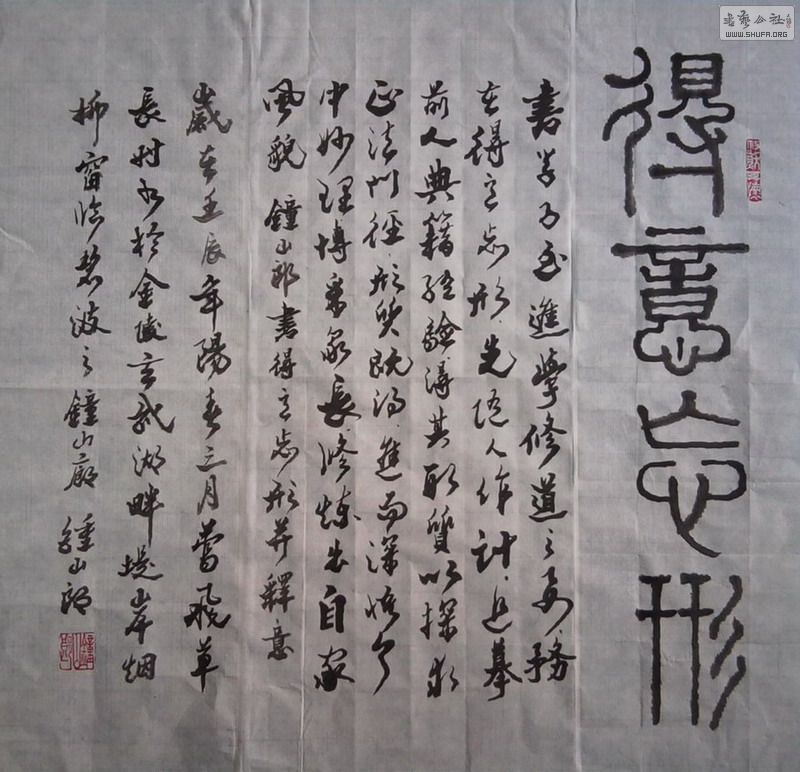 書藝公社
WWW.SHUFA.ORG
得意忘形
書學乃至進學修道之要務
在得意忘形先人作計追摹
前人典籍經驗得其形質以探求
正法門徑形質既得進而深悟个
中妙理博采眾長修煉出自家
風貌 鐘山郎書得意忘形并釋意
歲在壬辰年陽春三月鶯飛草
長時於金陵玄武湖畔堤岸烟
柳窗臨碧波之鐘山廊 鍾山郎